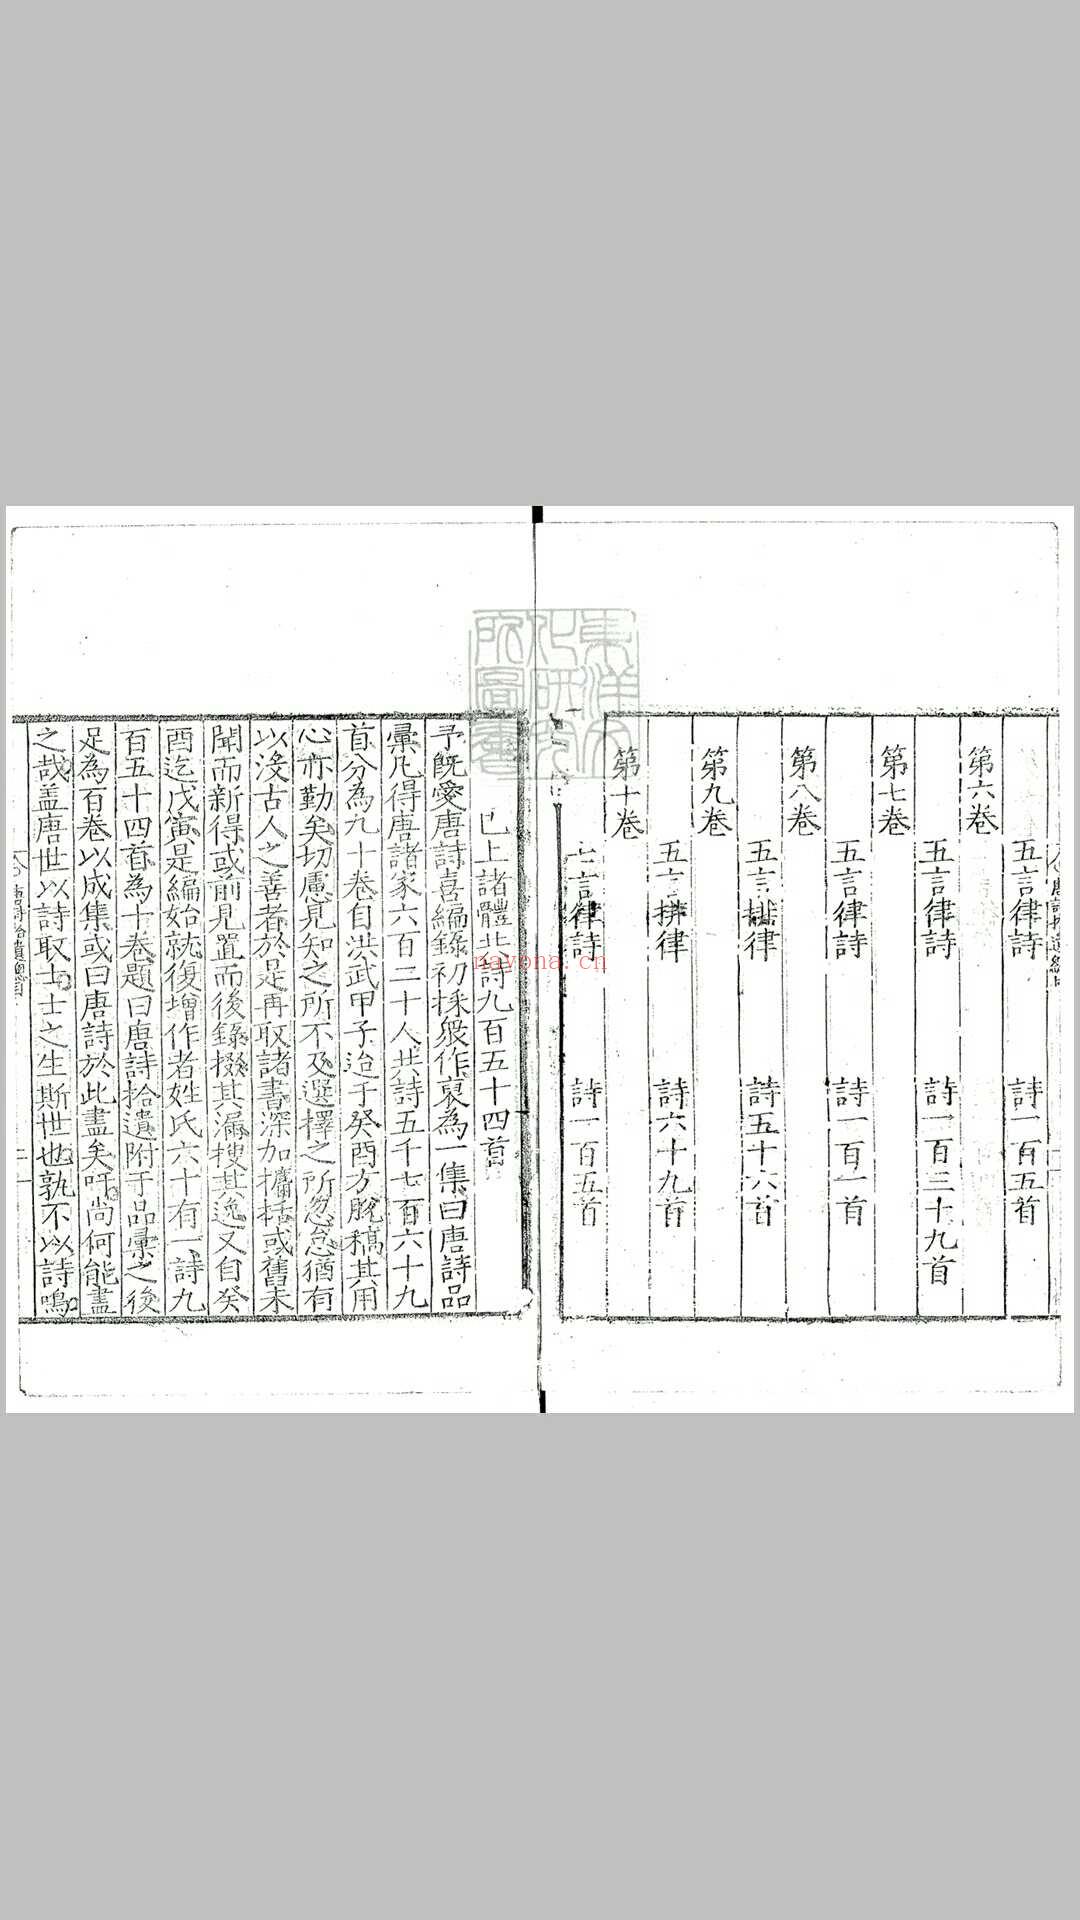 五言律詩　詩一百五首
第六卷
五言律詩　詩一百三十九首
第七卷
五言律詩　詩一百一首
第八卷
五言排律　詩五十六首
第九卷
五言排律　詩六十九首
第十卷
七言律詩　詩一百五首
東洋文
化研究
所圖書
已上諸體共詩九百五十四首
予旣愛唐詩喜編錄初採衆作裒為一集曰唐詩品
彚凡得唐諸家六百二十人共詩五千七百六十九
首分為九十卷自洪武甲子迨于癸酉方脫稿其用
心亦勤矣切慮見知之所不及選擇之所忽怠猶有
以沒古人之善者於是再取諸書深加擕括或舊未
聞而新得或前見置而後錄掇其漏搜其逸又自癸
酉迄戊寅是編始就復增作者姓氏六十有一詩九
百五十四首為十卷題曰唐詩拾遺附于品彚之後
足為百卷以成集或曰唐詩於此盡矣吁尚何能盡
之哉盖唐世以詩取士士之生斯世也孰不以詩鳴
唐詩拾遺總目
nayona.cn